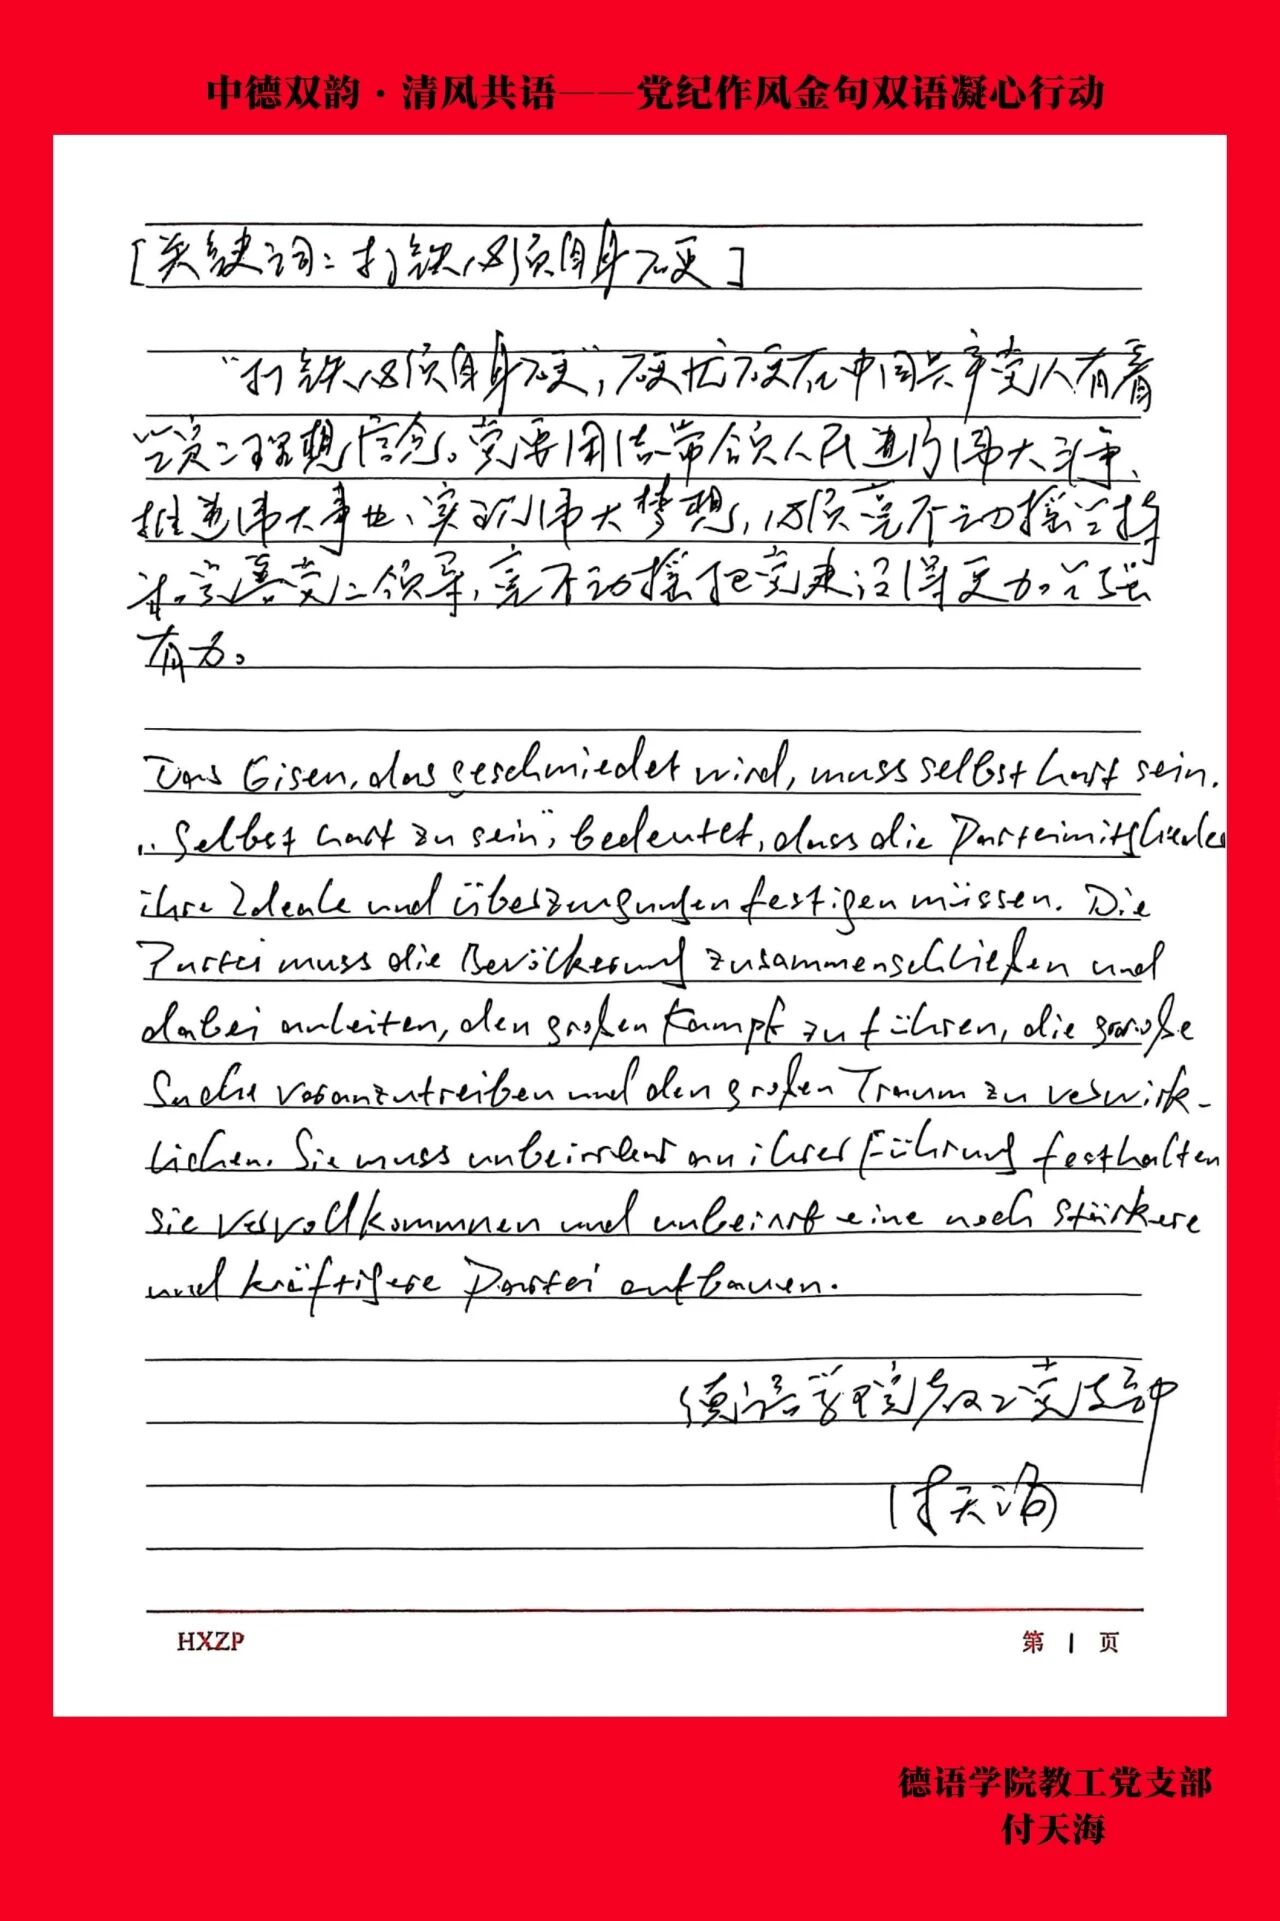 中德双韵·清风共语——党纪作风金句双语凝心行动
[关键词：打铁必须自身硬]
“打铁必须自身硬”，硬就硬在中国共产党人有着
坚定理想信念。党要团结带领人民进行伟大斗争、
推进伟大事业、实现伟大梦想，必须毫不动摇坚持
和完善党的领导，毫不动摇把党建设得更加坚强
有力。
Das Eisen, das geschmiedet wird, muss selbst hart sein.
„Selbst hart zu sein“, bedeutet, dass die Parteimitglieder
ihre Ideale und Überzeugungen festigen müssen. Die
Partei muss die Bevölkerung zusammenschließen und
dabei anleiten, den großen Kampf zu führen, die große
Sache voranzutreiben und den großen Traum zu verwirk-
lichen. Sie muss unbeirrbar an ihrer Führung festhalten
sie vervollkommnen und unbeirrt eine noch stärkere
und kräftigere Partei aufbauen.
德语学院教工党支部
付天海
HXZP 第 1 页
德语学院教工党支部
付天海